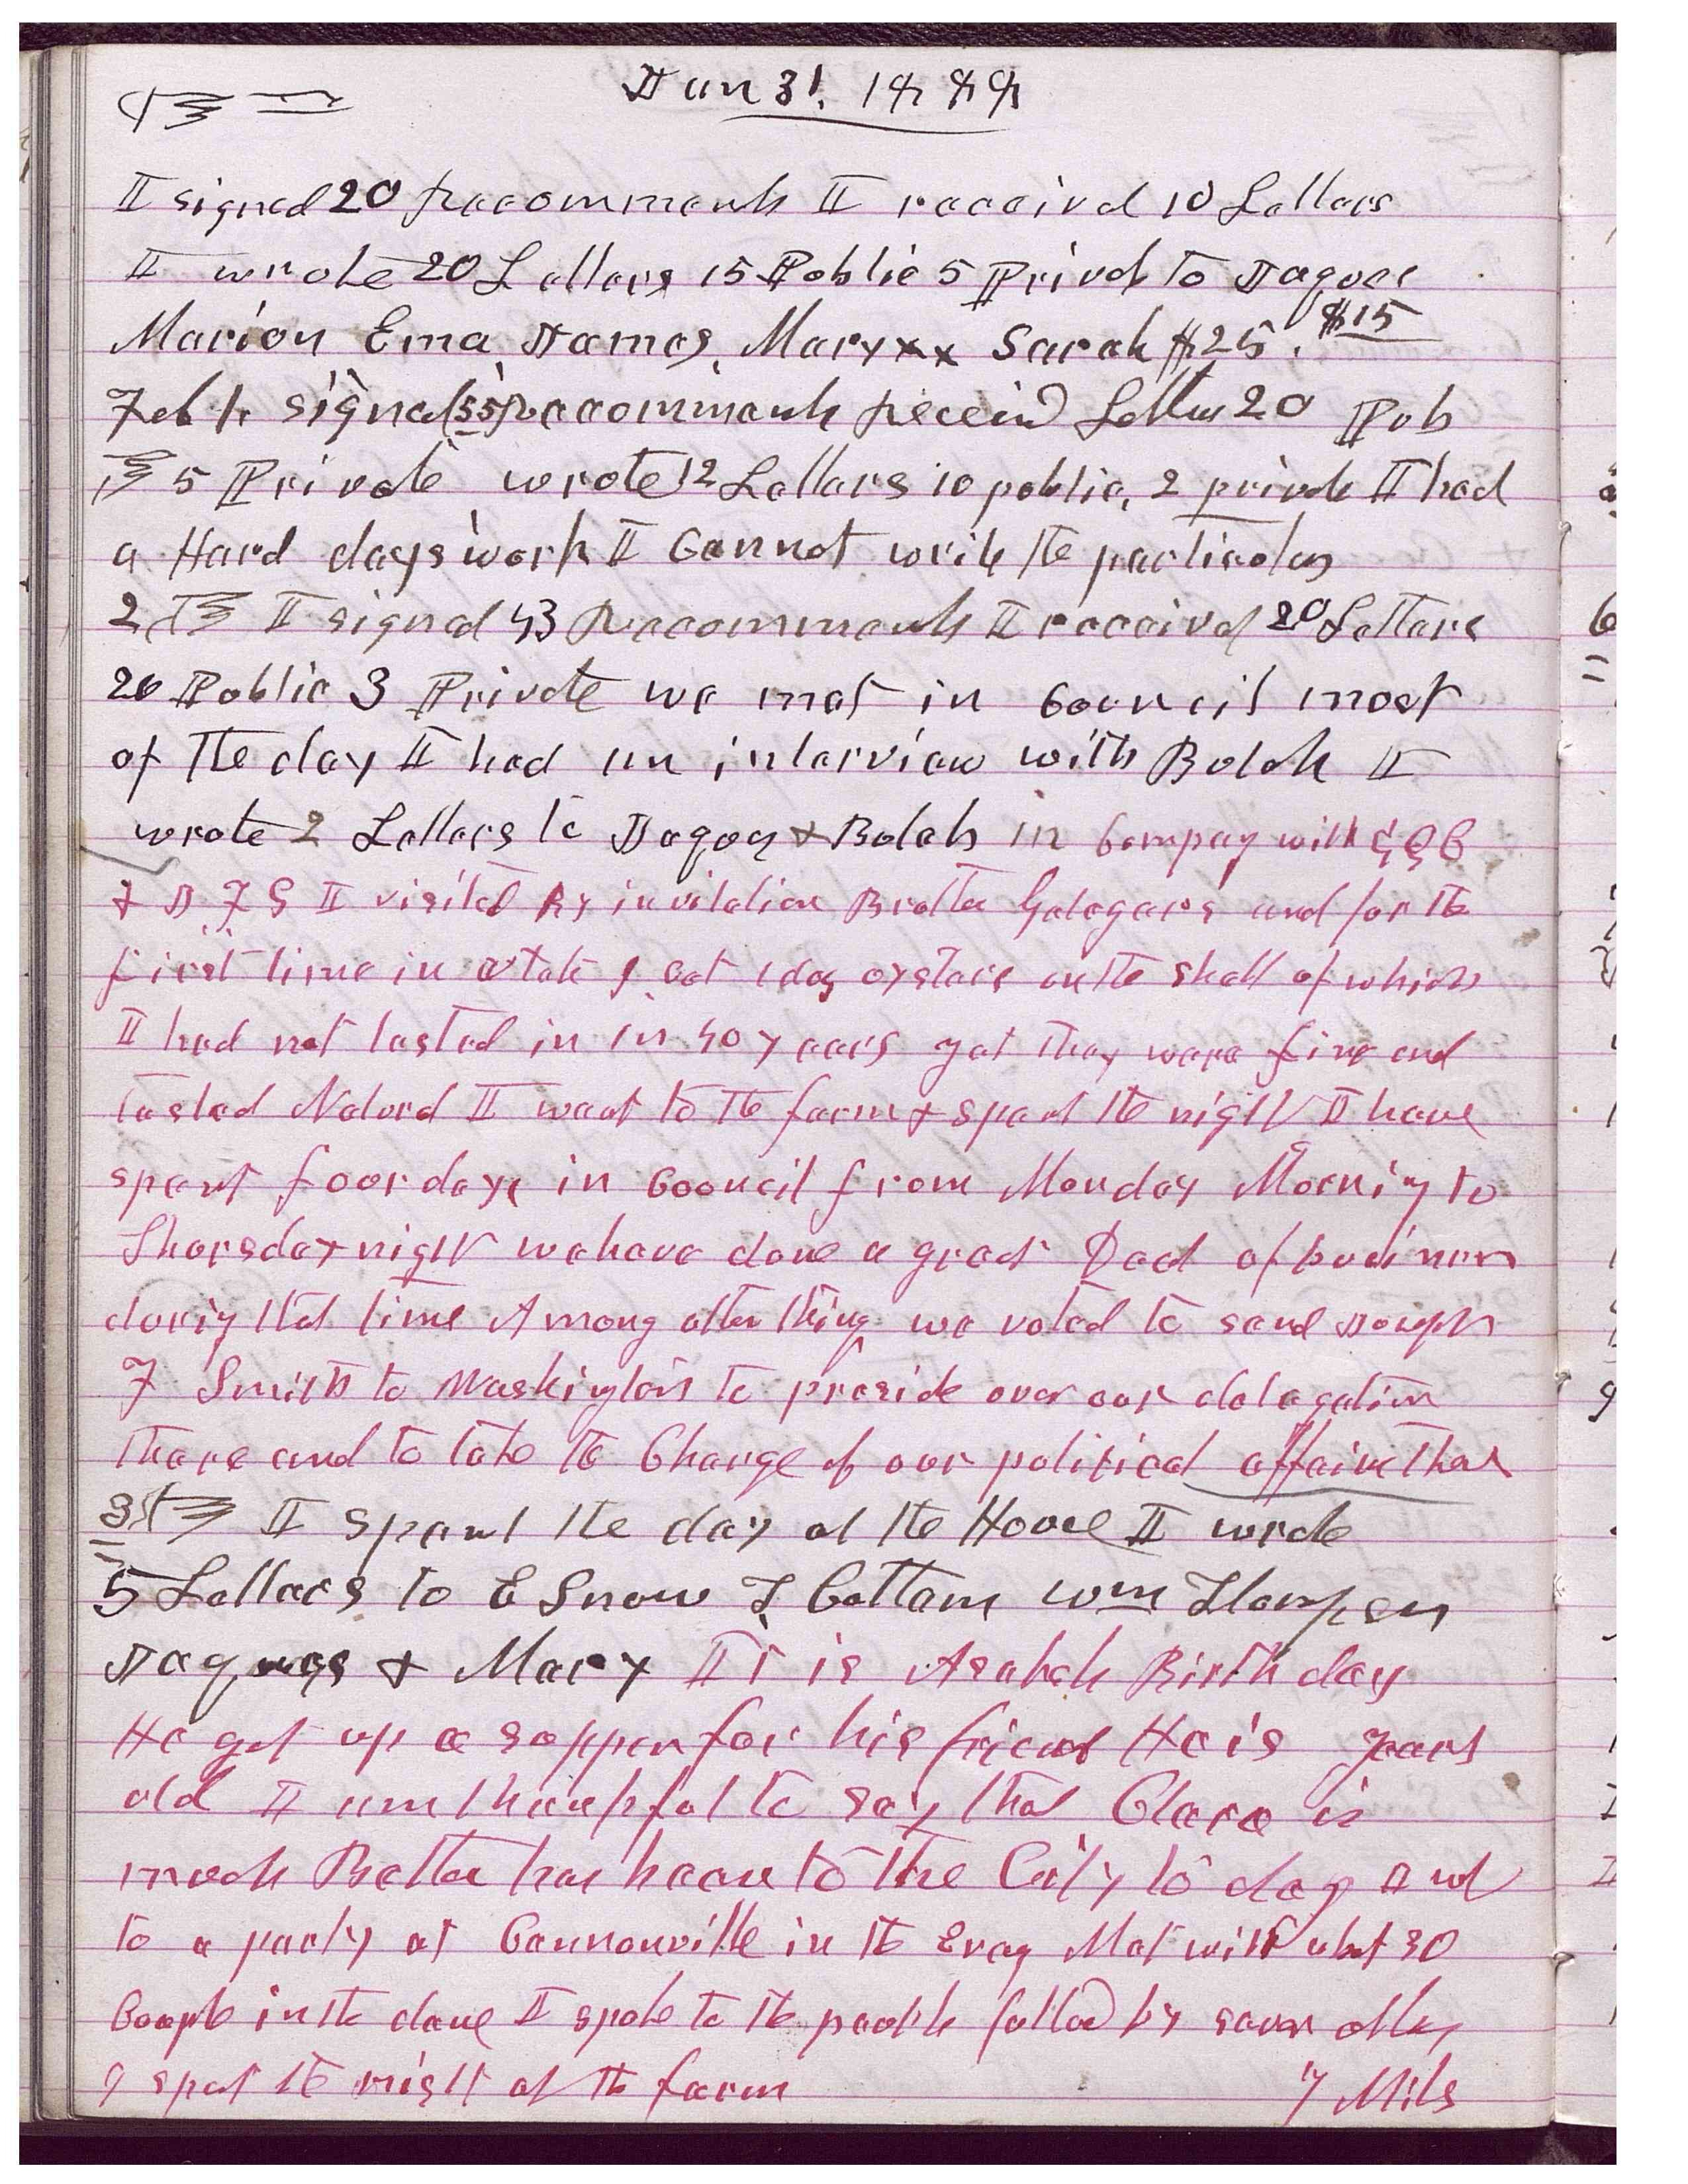 Jan 31. 1888
I signed 20 Recommends I received 10 Letters
I wrote 20 Letters 15 Public 5 Privat to Jaques
Marion Ema, James, Mary xx Sarah $25. $15
Feb 1. signed 55 Recommends Receivd Letters 20 Pub
5 Private wrote 12 Letters 10 public, 2 private I had
a Hard days work I Cannot write the particulars
2 I signed 43 Recommends I received 20 Letters
20 Public 3 Private we met in Council most
of the day I had an interview with Bulah I
wrote 2 Letters to Jaques & Bulah in Compay with
& J F S I visited By invitation Brother and for the
first time in Utah I eat 1 doz oysters in the shell of which
I had not tasted in in 40 years yet they were fine and
tasted Natural I went to the farm & spent the night I have
spent four days in Council from Monday Morning to
Thursday night we have done a great Deal of buisiness
during that time Among other things we voted to send Joseph
F Smith to Washington to preside over our delegation
there and to take the Charge of our political affairs that
3 I spent the day at the House I wrote
5 Letters to E Snow T Cottam Wm Thompson
Jaques & Mary It is Asahels Birth day
He got up a supper for his friends He is years
old I am thankful to say that Clara is
much Better has been to the City to day And
to a party at Cannonville in the Eveng Met with about 30
Couple in the dance I spoke to the people followed by several others
I spent the night at the farm 7 Miles